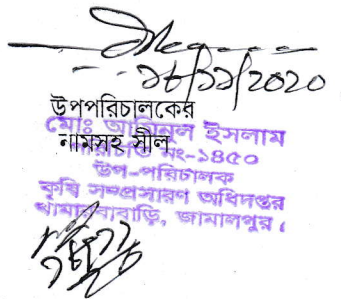 ১৮/১১/2020
উপপরিচালকের
নামসহ সীল
মোঃ আমিনুল ইসলাম
পরিচিতি নং-১৪৫০
উপ-পরিচালক
কৃষি সম্প্রসারণ অধিদপ্তর
খামারবাড়ি, জামালপুর।